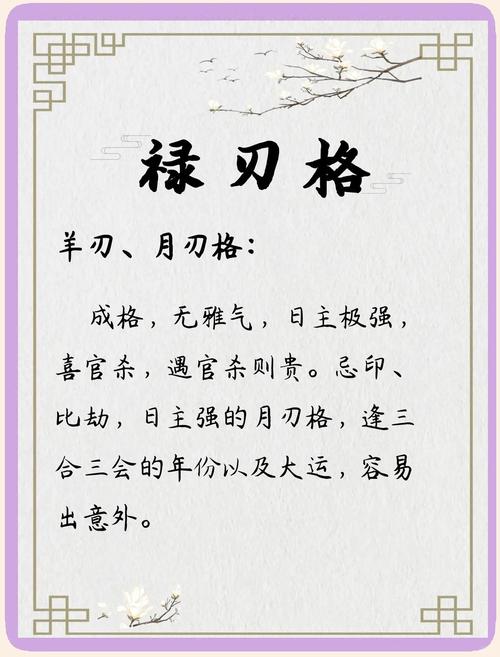 禄刃格
羊刃、月刃格：
成格，无雅气，日主极强，
喜官杀，遇官杀则贵。忌印、
比劫，日主强的月刃格，逢三
合三会的年份以及大运，容易
出意外。